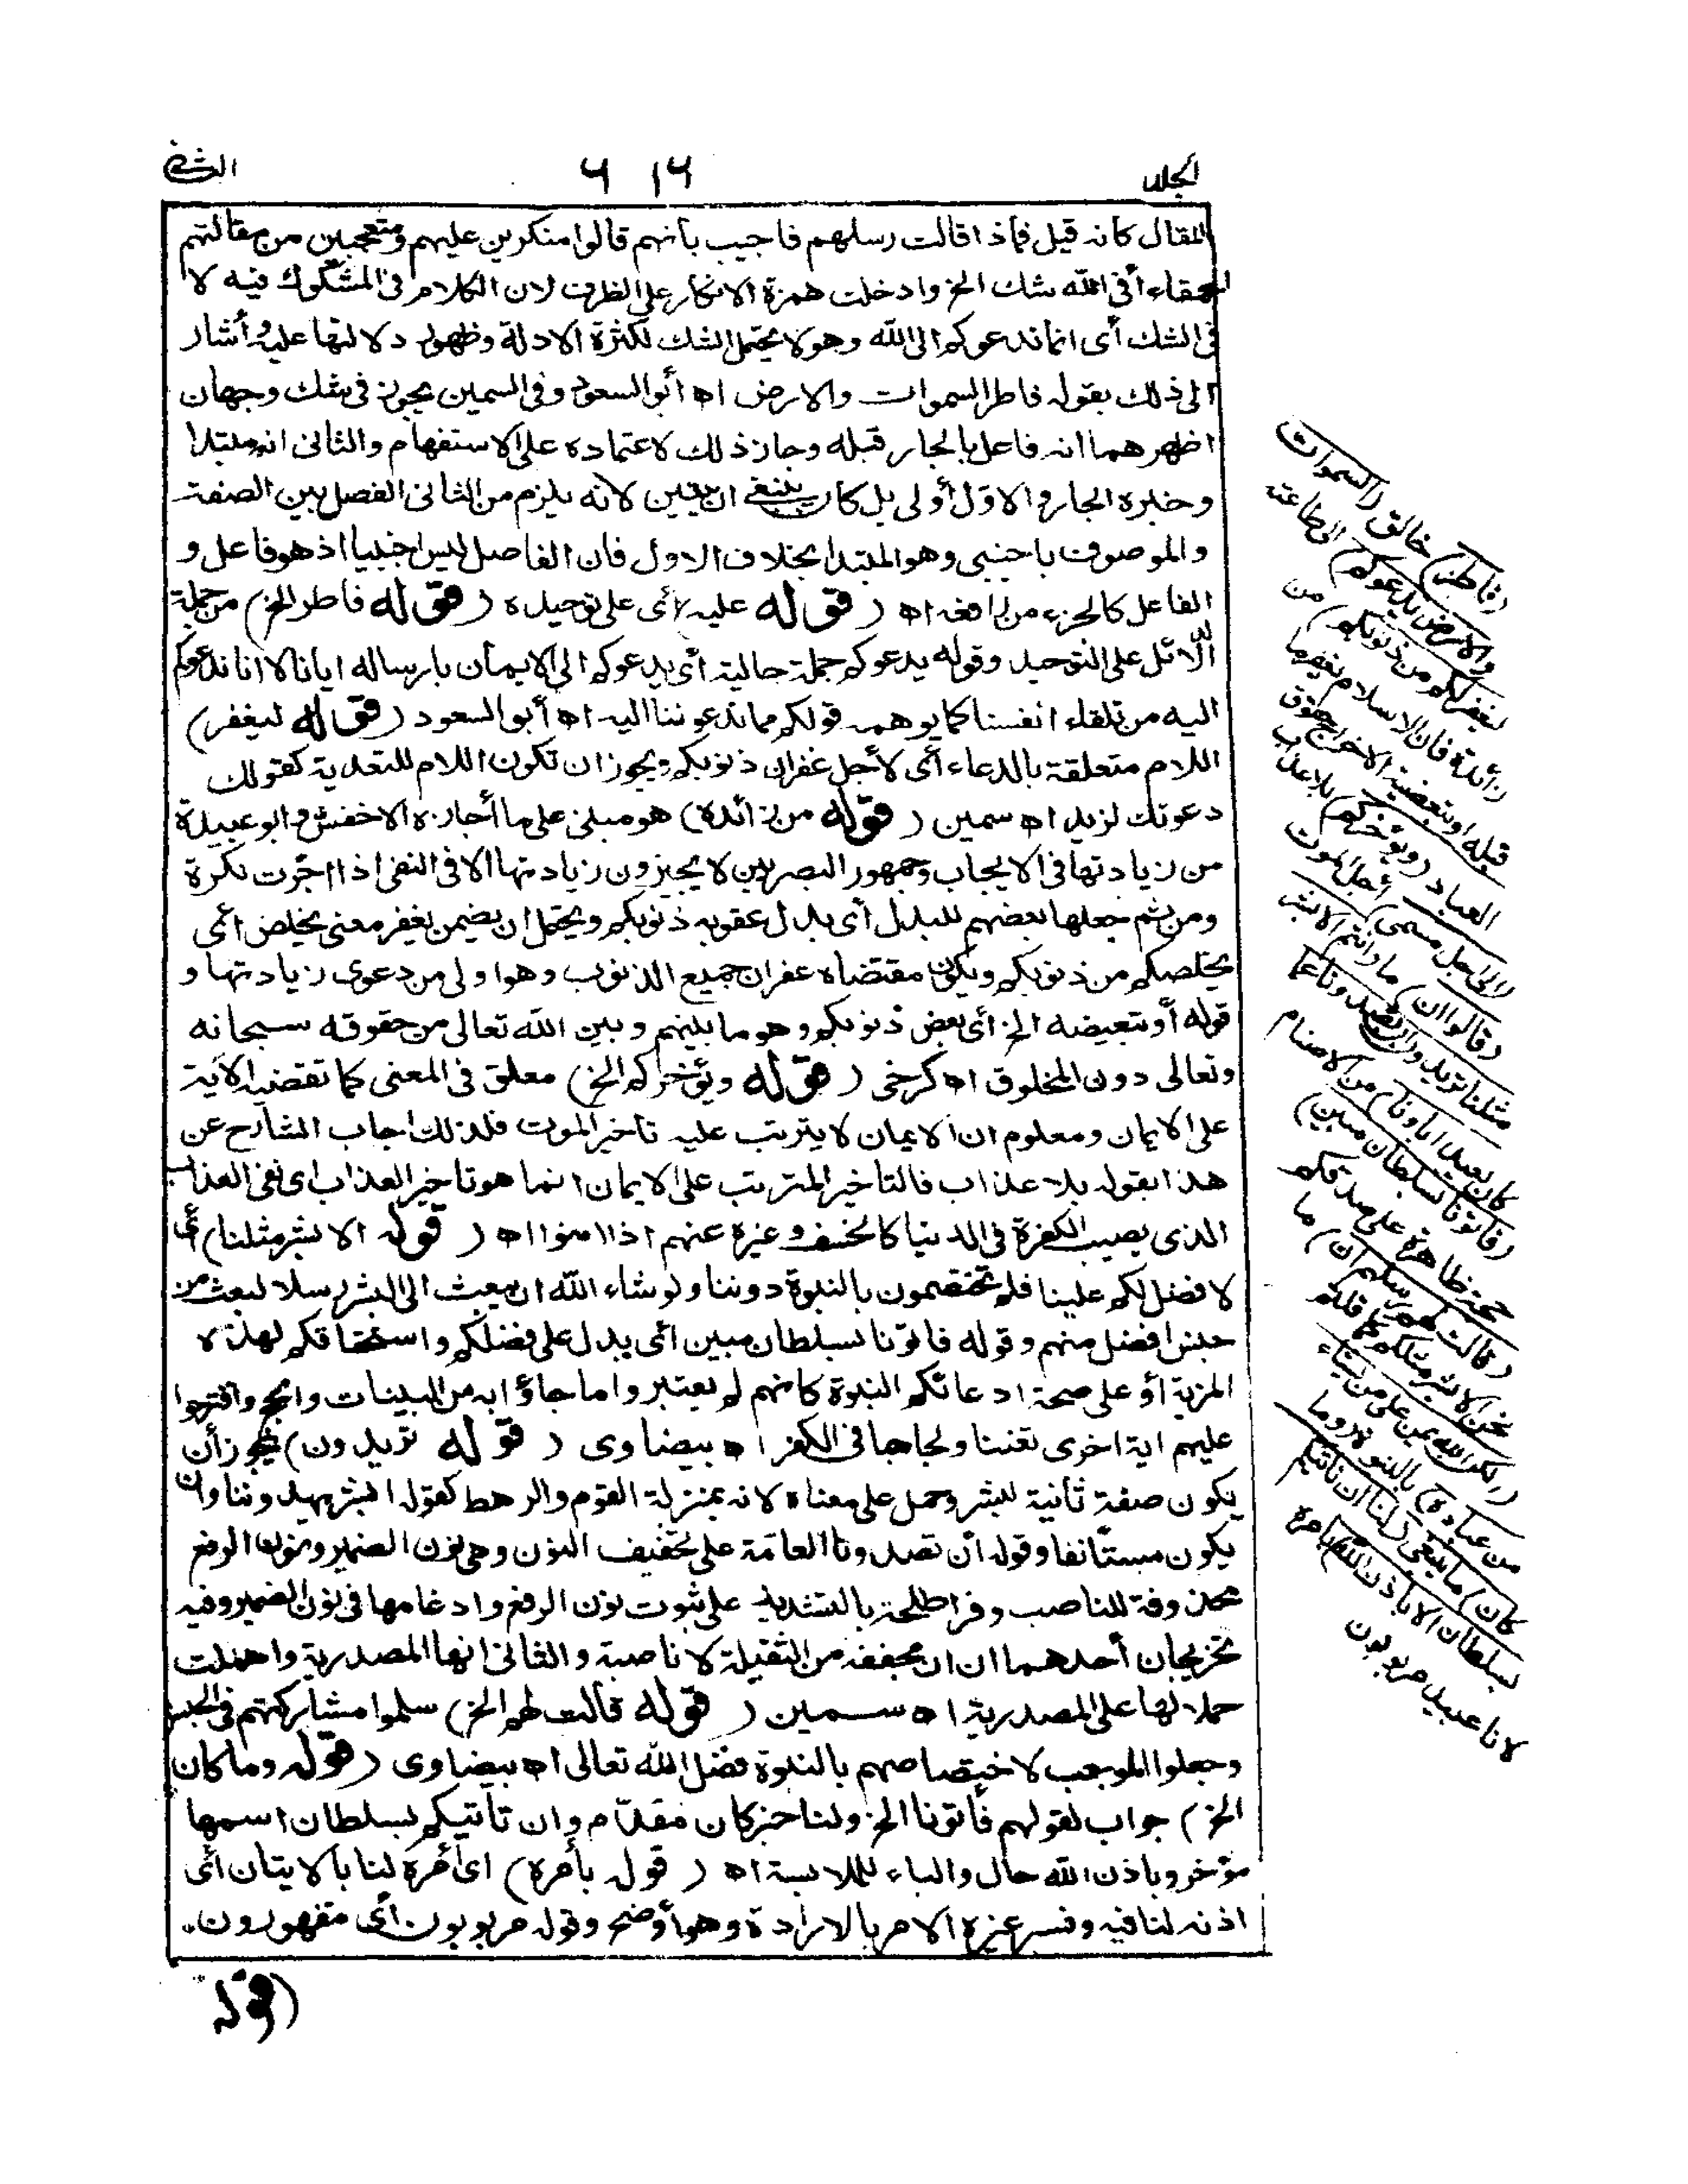 الجلد ٦١٦ الثانى
المقال كانه قيل فماذا قالت رسلهم فاجيب بأنهم قالوا منكرين عليهم ومتعجبين من مقالتهم
الحمقاء أفى الله شك الخ وادخلت همزة الانكار على الظرف لان الكلام فى المشكوك فيه لا
فى الشك أى انما ندعوكم الى الله وهو لا يحتمل الشك لكثرة الادلة وظهور دلالتها عليه وأشار
الى ذلك بقوله فاطر السموات والارض اه أبو السعود وفى السمين يجوز فى شك وجهان
اظهرهما انه فاعل بالجار قبله وجاز ذلك لاعتماده على الاستفهام والثانى انه مبتدا
وخبره الجار والاول أولى بل كان ينبغى ان يتعين لانه يلزم من الثانى الفصل بين الصفة
والموصوف باجنبى وهو المبتدا بخلاف الاول فان الفاصل ليس اجنبيا اذ هو فاعل و
الفاعل كالجزء من رافعه اه (قوله عليه) أى على توحيده (قوله فاطر الخ) من جملة
الدلائل على التوحيد وقوله يدعوكم جملة حالية أى يدعوكم الى الايمان بارساله ايانا لا انا ندعوكم
اليه من تلقاء انفسنا كما يوهمه قولكم مما تدعوننا اليه اه أبو السعود (قوله ليغفر)
اللام متعلقة بالدعاء أى لأجل غفران ذنوبكم ويجوز ان تكون اللام للتعدية كقولك
دعوتك لزيد اه سمين (قوله من زائدة) هو مبنى على ما أجازه الاخفش وابو عبيدة
من زيادتها فى الايجاب وجمهور البصريين لا يجيزون زيادتها الا فى النفى اذا جرت نكرة
ومن ثم جعلها بعضهم للبدل أى بدل عقوبه ذنوبكم ويحتمل ان يضمن يغفر معنى يخلص أى
يخلصكم من ذنوبكم ويكون مقتضاه غفران جميع الذنوب وهو اولى من دعوى زيادتها و
قوله أو تبعيضه الخ أى بعض ذنوبكم وهو ما بينهم وبين الله تعالى من حقوقه سبحانه
وتعالى دون المخلوق اه كرخى (قوله ويؤخركم الخ) معلق فى المعنى كما تقتضيه الآية
على الايمان ومعلوم ان الايمان لا يترتب عليه تاخير الموت فلذلك اجاب الشارح عن
هذا بقوله بلا عذاب فالتاخير المترتب على الايمان انما هو تاخير العذاب اى نفى العذاب
الذى يصيب الكفرة فى الدنيا كالخسف وغيره عنهم اذا امنوا اه (قوله الا بشر مثلنا) أى
لا فضل لكم علينا فلم تختصون بالنبوة دوننا ولو شاء الله ان يبعث الى البشر رسلا لبعث من
جنس افضل منهم وقوله فاتونا بسلطان مبين أى يدل على فضلكم واستحقاقكم لهذه
المزية أو على صحة ادعائكم النبوة كانهم لم يعتبروا ما جاؤا به من البينات والحجج واقترحوا
عليهم اية اخرى تعنتا ولجاجا فى الكفر اه بيضاوى (قوله تريدون) يجوز أن
يكون صفة ثانية لبشر وحمل على معناه لانه بمنزلة القوم والرهط كقوله ابشر يهدوننا وان
يكون مستأنفا وقوله أن تصدونا العامة على تخفيف النون وهى نون الضمير ونون الرفع
محذوفة للناصب وقرا طلحة بالتشديد على ثبوت نون الرفع وادغامها فى نون الضمير وفيه
تخريجان أحدهما ان ان مخففه من الثقيلة لا ناصبة والثانى انها المصدرية واهملت
حملا لها على المصدرية اه سمين (قوله قالت لهم الخ) سلموا مشاركتهم فى الجنس
وجعلوا الموجب لاختصاصهم بالنبوة فضل الله تعالى اه بيضاوى (قوله وما كان
الخ) جواب لقولهم فأتونا الخ ولنا خبر كان مقدّم وان تأتيكم بسلطان اسمها
مؤخر وباذن الله حال والباء للملابسة اه (قوله بأمره) اى أمره لنا بالايتان أى
اذنه لنا فيه وفسر غيره الامر بالارادة وهو أوضح وقوله مربوبون أى مقهورون.
(قوله
(فاطر) خالق (السموات
والارض يدعوكم) الى طاعته
(ليغفر لكم من ذنوبكم) من
زائدة فان الاسلام يغفر ما
قبله او تبعضية لاخراج حقوق
العباد (ويؤخركم) بلا عذاب
(الى اجل مسمى) أجل الموت
(قالوا ان) ما (انتم الا بشر
مثلنا تريدون ان تصدونا عما
كان يعبد اباونا) من الاصنام
(فاتونا بسلطان مبين)
حجة ظاهرة على صدقكم
(قالت لهم رسلهم ان) ما
نحن الا بشر مثلكم كما قلتم
(ولكن الله يمن على من يشاء
من عباده) بالنبوة (وما
كان) ما ينبغى (لنا ان ناتيكم
بسلطان الا باذن الله) بامره
لانا عبيد مربوبون